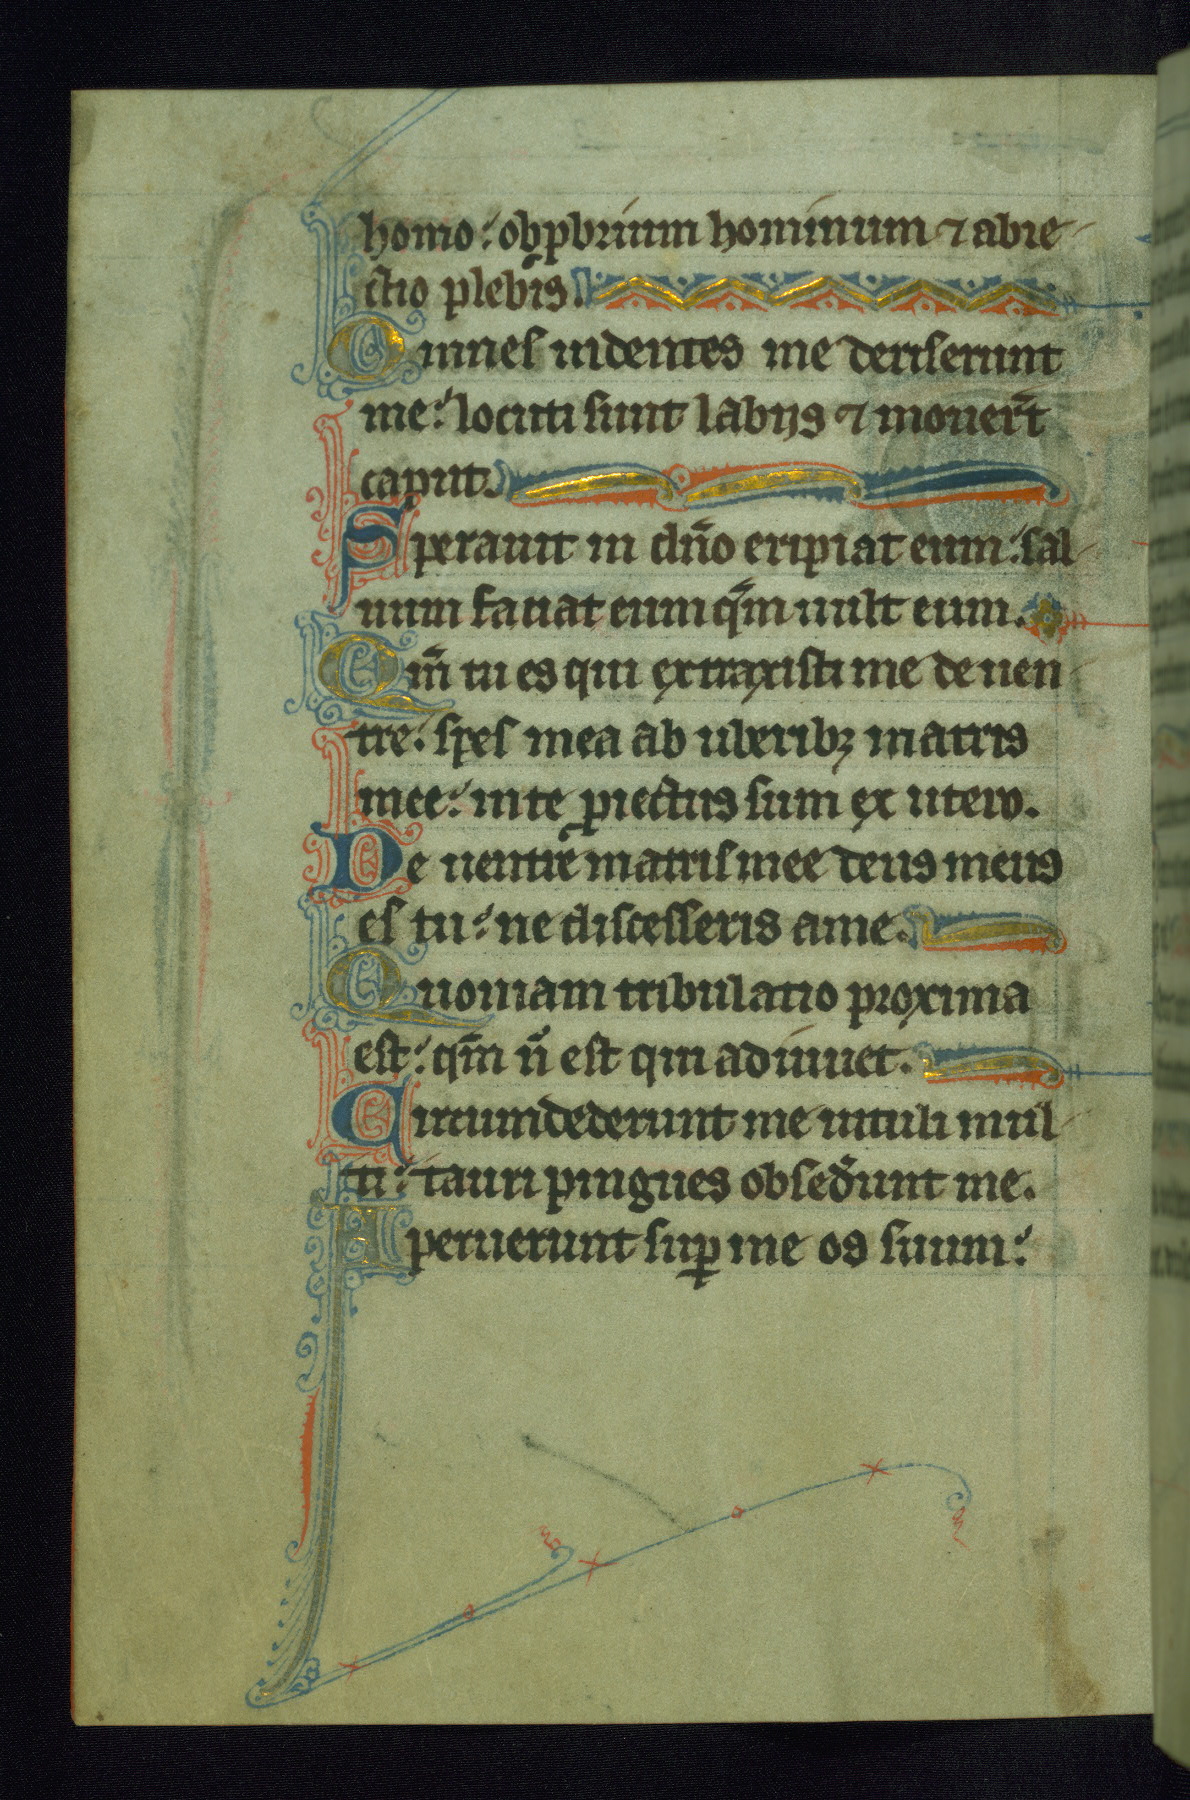 homo: obp̱brium hominum ⁊ abie
ctio plebis.
Omnes uidentes me deriserunt
me: locuti sunt labijs ⁊ mouer̄t
caput.
Sperauit in dn̄o eripiat eum: sal
uum faciat eum qm̄ uult eum.
Qm̄ tu es qui extraxisti me de uen
tre: spes mea ab uberibꝫ matris
mee: in te ꝓiectus sum ex utero.
De uentre matris mee deus meus
es tu: ne discesseris a me.
Quoniam tribulatio proxima
est: qm̄ n̄ est qui adiuuet.
Circumdederunt me uituli mul
ti: tauri pingues obsed̄unt me.
Aperuerunt suꝑ me os suum: